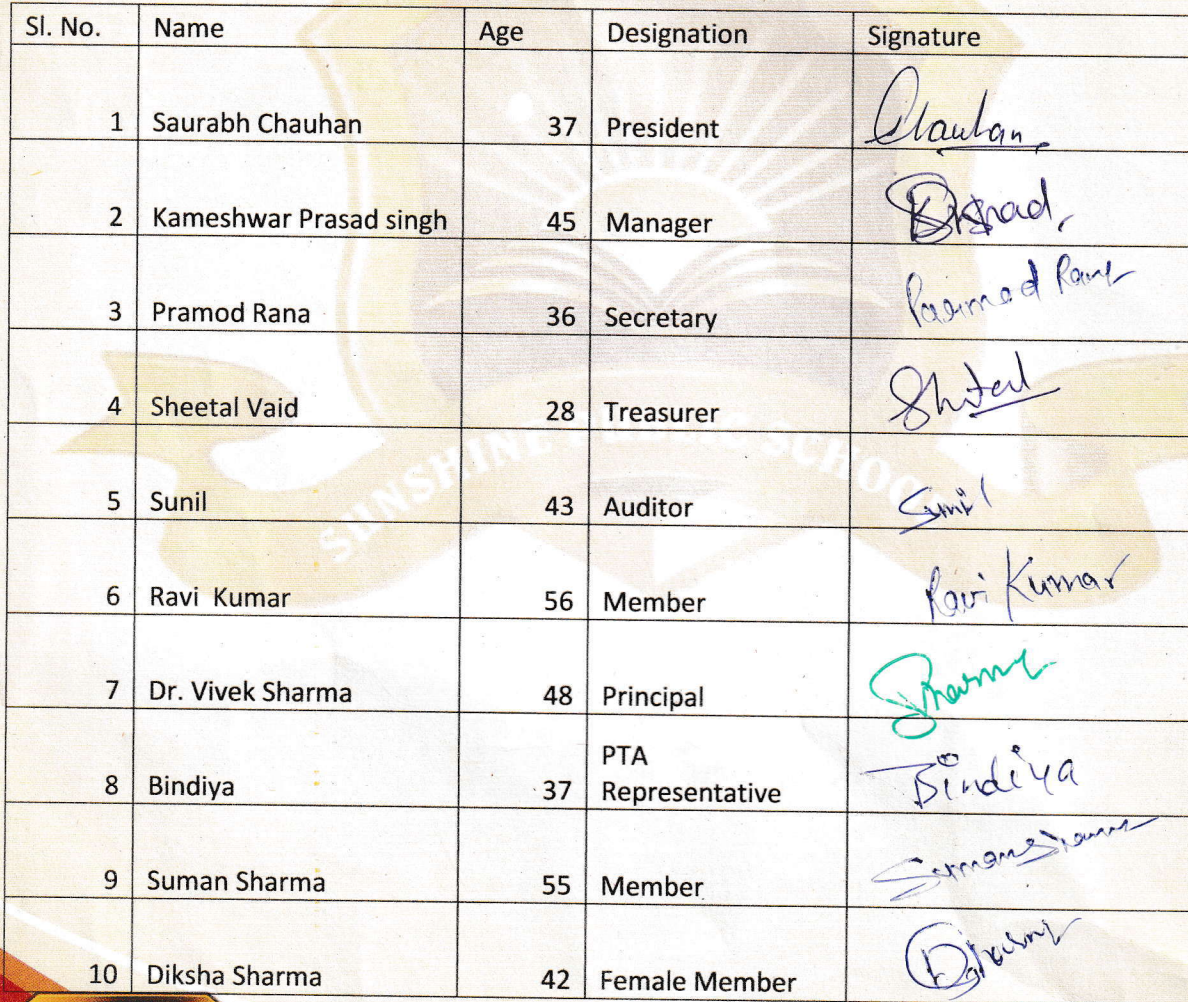 Sl. No. Name Age Designation Signature
1 Saurabh Chauhan 37 President Chauhan
2 Kameshwar Prasad singh 45 Manager
3 Pramod Rana 36 Secretary Parmod Rana
4 Sheetal Vaid 28 Treasurer Shital
5 Sunil 43 Auditor Sunil
6 Ravi Kumar 56 Member Ravi Kumar
7 Dr. Vivek Sharma 48 Principal
8 Bindiya 37 PTA
Representative Bindiya
9 Suman Sharma 55 Member Suman Sharma
10 Diksha Sharma 42 Female Member
SUNSHINE PUBLIC SCHOOL